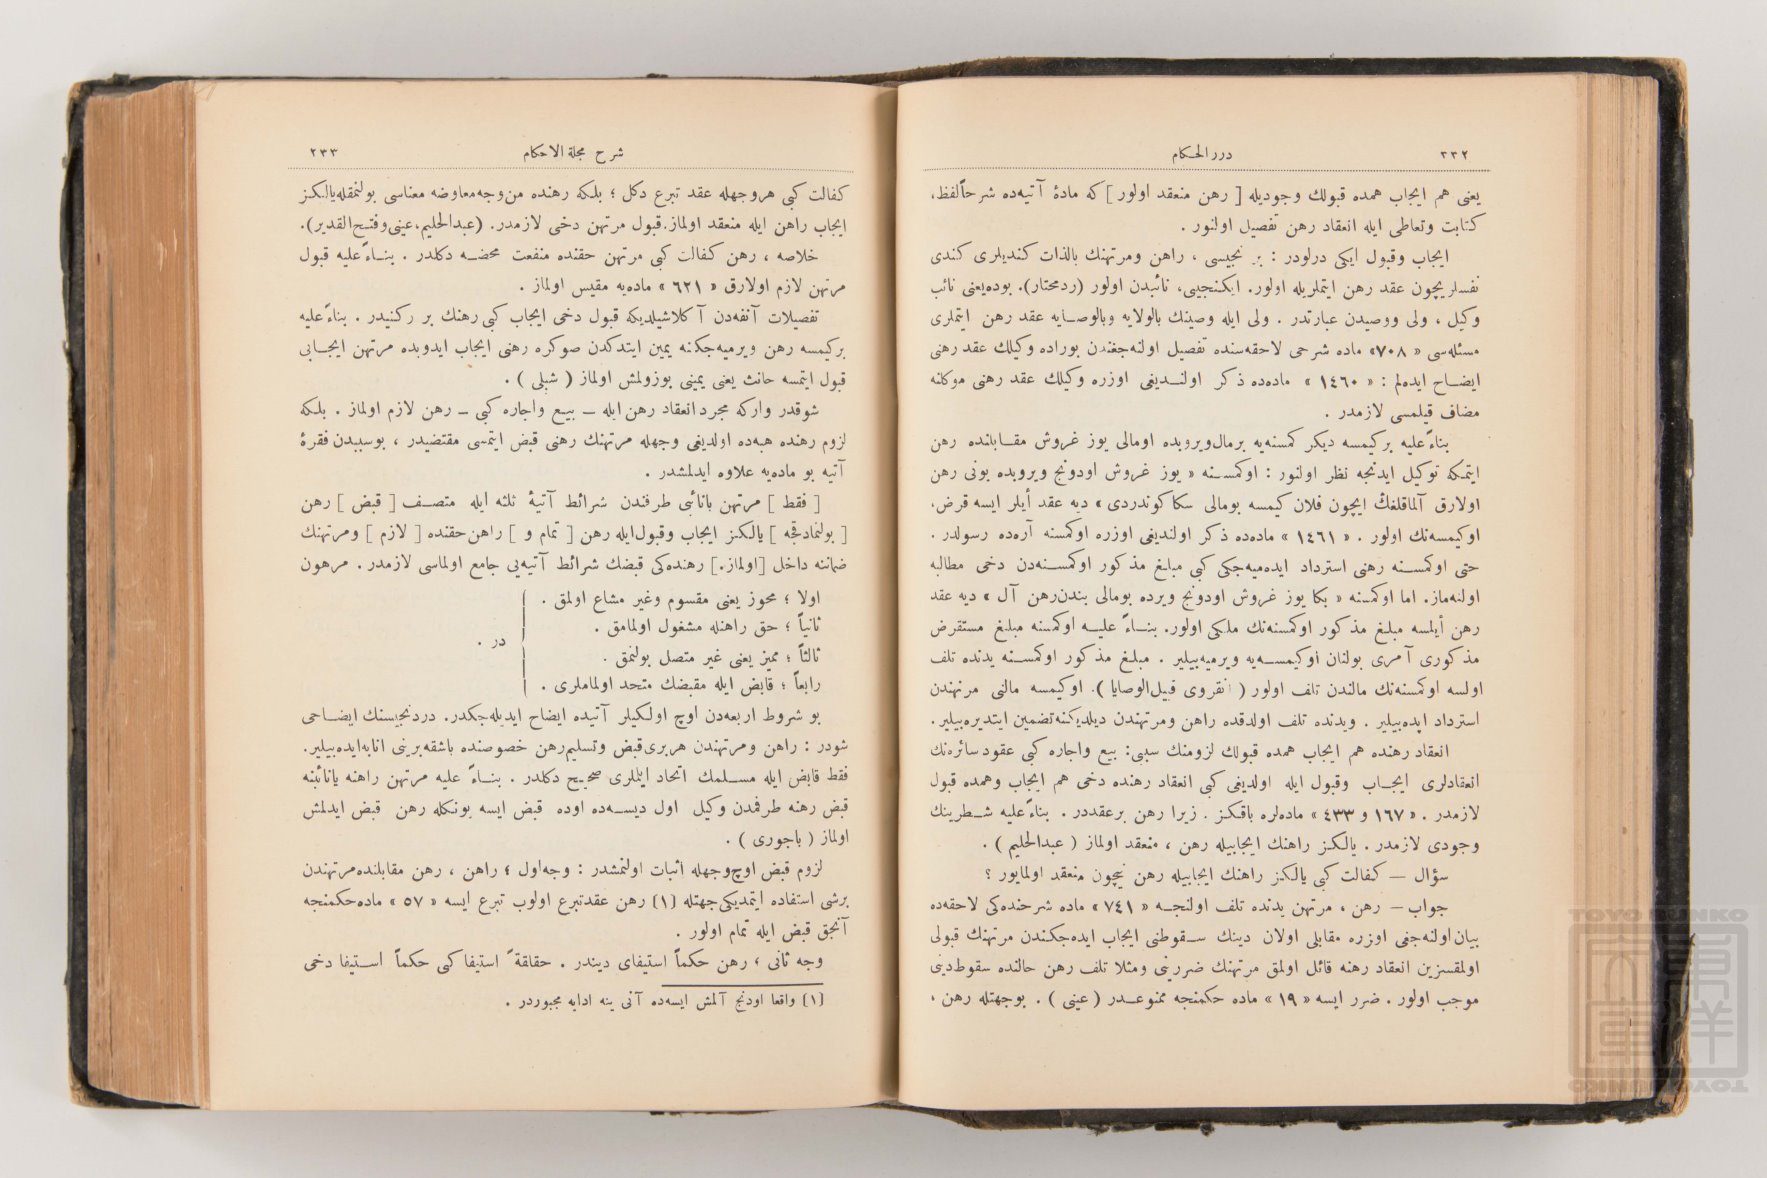 ٢٣٢
درر الحكام
يعنى هم ايجاب همده قبولك وجوديله [ رهن منعقد اولور ] كه مادۀ آتيه‌ده شرحاً لفظ،
كتابت وتعاطى ايله انعقاد رهن تفصيل اولنور .
ايجاب وقبول ايكى درلودر : برنجيسى ، راهن ومرتهنك بالذات كنديلرى كندى
نفسلريچون عقد رهن ايتملريله اولور. ايكنجيى، نائبدن اولور (ردمحتار). بوده‌يعنى نائب
وكيل ، ولى ووصيدن عبارتدر . ولى ايله وصينك بالولايه وبالوصايه عقد رهن ايتملرى
مسئله‌سى « ٧٠٨» ماده شرحى لاحقه‌سنده تفصيل اولنه‌جغندن بوراده وكيلك عقد رهنى
ايضاح ايده‌لم : « ١٤٦٠ » ماده‌ده ذكر اولنديغى اوزره وكيلك عقد رهنى موكلنه
مضاف قيلمسى لازمدر .
بناءً عليه بركيمسه ديكر كمسنه‌يه برمال‌ويروبده اومالى يوز غروش مقابلنده رهن
ايتمكه توكيل ايدنجه نظر اولنور : اوكمسنه « يوز غروش اودونج ويروبده بونى رهن
اولارق آلماقلغك ايچون فلان كيمسه بومالى سكا كوندردى » ديه عقد ايلر ايسه قرض،
اوكيمسه‌نك اولور . « ١٤٦١ » ماده‌ده ذكر اولنديغى اوزره اوكمسنه آره‌ده رسولدر .
حتى اوكمسنه رهنى استرداد ايده‌ميه‌جكى كبى مبلغ مذكور اوكمسنه‌دن دخى مطالبه
اولنه‌ماز. اما اوكمسنه « بكا يوز غروش اودونج ويرده بومالى بندن‌رهن آل » ديه عقد
رهن ايلسه مبلغ مذكور اوكمسنه‌نك ملكى اولور. بناءً عليه اوكمسنه مبلغ مستقرض
مذكورى آمرى بولنان اوكيمسه‌يه ويرميه‌بيلير . مبلغ مذكور اوكمسنه يدنده تلف
اولسه اوكمسنه‌نك مالندن تلف اولور ( انقروى قبيل‌الوصايا ). اوكيمسه مالنى مرتهندن
استرداد ايده‌بيلير . ويدنده تلف اولدقده راهن ومرتهندن ديلديكنه‌تضمين ايتديره‌بيلير.
انعقاد رهنده هم ايجاب همده قبولك لزومنك سببى: بيع واجاره كبى عقود سائره‌نك
انعقادلرى ايجاب وقبول ايله اولديغى كبى انعقاد رهنده دخى هم ايجاب وهمده قبول
لازمدر . « ١٦٧ و ٤٣٣ » ماده‌لره باقكز . زيرا رهن برعقددر . بناءً عليه شطرينك
وجودى لازمدر . يالكز راهنك ايجابيله رهن ، منعقد اولماز ( عبدالحليم ) .
سؤال — كفالت كبى يالكز راهنك ايجابيله رهن نيچون منعقد اولمايور ؟
جواب — رهن ، مرتهن يدنده تلف اولنجه « ٧٤١» ماده شرحنده‌كى لاحقه‌ده
بيان‌اولنه‌جغى اوزره مقابلى اولان دينك سقوطنى ايجاب ايده‌جكندن مرتهنك قبولى
اولمقسزين انعقاد رهنه قائل اولمق مرتهنك ضررينى ومثلا تلف رهن حالنده سقوط‌دينى
موجب اولور . ضرر ايسه « ١٩ » ماده حكمنجه ممنوعدر ( عينى ) . بوجهتله رهن ،
شرح مجلة الاحكام
٢٣٣
كفالت كبى هروجهله عقد تبرع دكل ؛ بلكه رهنده من‌وجه‌معاوضه معناسى بولنمقله‌يالكز
ايجاب راهن ايله منعقد اولماز.قبول مرتهن دخى لازمدر. (عبدالحليم،عينى‌وفتح‌القدير).
خلاصه ، رهن كفالت كبى مرتهن حقنده منفعت محضه دكلدر . بناءً عليه قبول
مرتهن لازم اولارق « ٦٢١ » ماده‌يه مقيس اولماز .
تفصيلات آنفه‌دن آكلاشيلديكه قبول دخى ايجاب كبى رهنك بر ركنيدر . بناءً عليه
بركيمسه رهن ويرميه‌جكنه يمين ايتدكدن صوكره رهنى ايجاب ايدوبده مرتهن ايجابى
قبول ايتمسه حانث يعنى يمينى بوزولمش اولماز ( شبلى ) .
شوقدر واركه مجرد انعقاد رهن ايله — بيع واجاره كبى — رهن لازم اولماز . بلكه
لزوم رهنده هبه‌ده اولديغى وجهله مرتهنك رهنى قبض ايتمسى مقتضيدر ، بوسببدن فقرۀ
آتيه بو ماده‌يه علاوه ايدلمشدر .
[ فقط ] مرتهن يانائبى طرفندن شرائط آتيۀ ثلثه ايله متصف [ قبض ] رهن
[ بولنمادقجه ] يالكز ايجاب وقبول‌ايله رهن [ تمام و ] راهن حقنده [ لازم ] ومرتهنك
ضماننه داخل [اولماز.] رهنده‌كى قبضك شرائط آتيه‌يى جامع اولماسى لازمدر . مرهون
اولا ؛ محوز يعنى مقسوم وغير مشاع اولمق .
ثانياً ؛ حق راهنله مشغول اولمامق .
در .
ثالثاً ؛ مميز يعنى غير متصل بولنمق .
رابعاً ؛ قابض ايله مقبضك متحد اولماملرى .
بو شروط اربعه‌دن اوچ اولكيلر آتيده ايضاح ايديله‌جكدر. دردنجيسنك ايضاحى
شودر : راهن ومرتهندن هربرى‌قبض وتسليم‌رهن خصوصنده باشقه‌برينى انابه‌ايده‌بيلير.
فقط قابض ايله مسلمك اتحاد ايتملرى صحيح دكلدر . بناءً عليه مرتهن راهنه يانائبنه
قبض رهنه طرفمدن وكيل اول ديسه‌ده اوده قبض ايسه بونكله رهن قبض ايدلمش
اولماز ( باجورى ) .
لزوم قبض اوچ‌وجهله اثبات اولنمشدر : وجه‌اول ؛ راهن ، رهن مقابلنده‌مرتهندن
برشى استفاده ايتمديكى‌جهتله [١] رهن عقدتبرع اولوب تبرع ايسه « ٥٧ » ماده‌حكمنجه
آنجق قبض ايله تمام اولور .
وجه ثانى ؛ رهن حكماً استيفاى ديندر . حقيقةً استيفا كبى حكماً استيفا دخى
[١] واقعا اودنج آلمش ايسه‌ده آنى ينه ادايه مجبوردر .